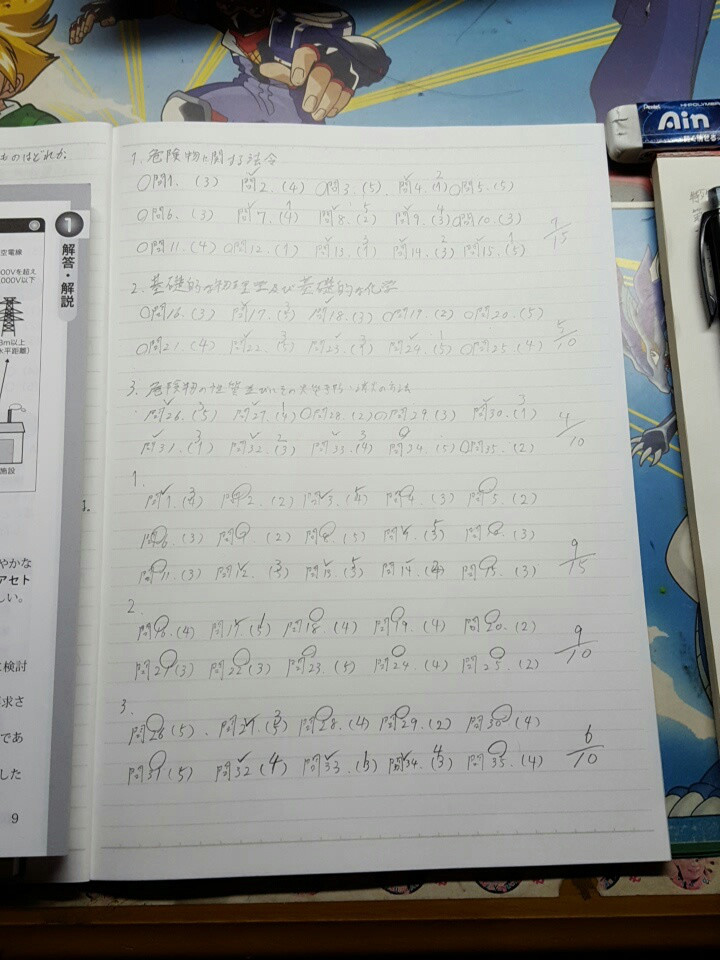 ものはどれか
1
解答・解説
空電線
000Vを超え
,000V以下
3m以上
水平距離)
施設
やかな
アセト
しい。
に検討
要求さ
であ
した
9
Pentel
HI-POLYMER
Ain
軽く消せる
1. 危険物に関する法令
問1. (3) 問2. (4) 問3. (5) 問4. 問5. (5)
問6. (3) 問7. 問8. 問9. 問10. (3)
問11. (4) 問12. (1) 問13. 問14. (3) 問15. (5)
7/15
2. 基礎的な物理学及び基礎的な化学
問16. (3) 問17. 問18. (3) 問19. (2) 問20. (5)
問21. (4) 問22. 問23. 問24. 問25. (4)
5/10
3. 危険物の性質並びにその火災予防
問26. (5) 問27. 問28. (2) 問29. (3) 問30.
問31. 問32. (3) 問33. 問34. (5) 問35. (2)
4/10
1.
問1. 問2. (2) 問3. 問4. (3) 問5. (2)
問6. (3) 問7. (2) 問8. (5) 問9. 問10. (3)
問11. (3) 問12. 問13. 問14. 問15. (3)
9/15
2.
問16. (4) 問17. 問18. (4) 問19. (4) 問20. (2)
問21 (3) 問22 (3) 問23. (5) 問24. (4) 問25. (2)
9/10
3.
問26 (5). 問27. 問28. (4) 問29. (2) 問30 (4)
問31 (5) 問32 (4) 問33. 問34. 問35. (4)
6/10